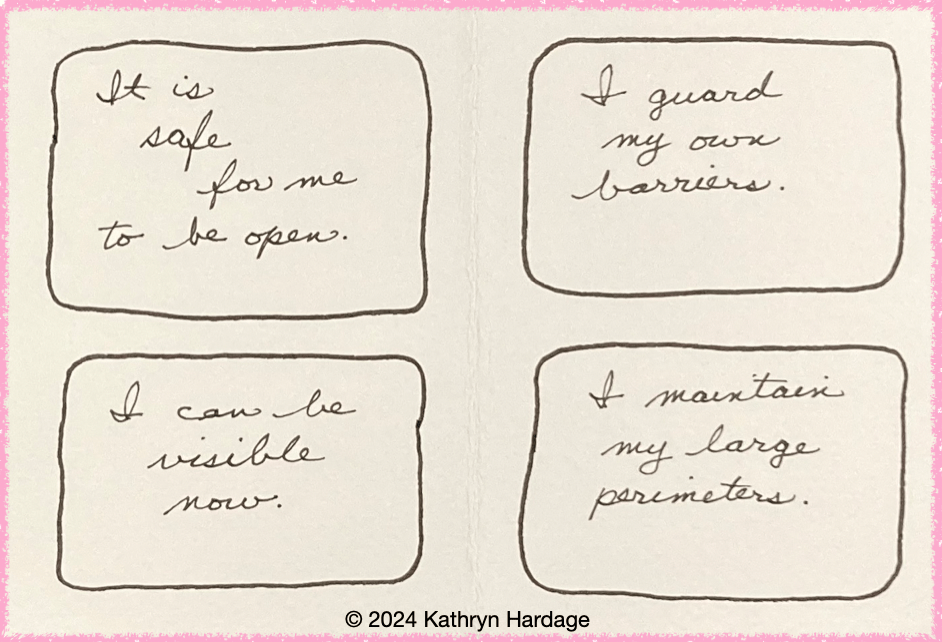 It is
safe
for me
to be open.
I guard
my own
barriers.
I can be
visible
now.
I maintain
my large
perimeters.
© 2024 Kathryn Hardage